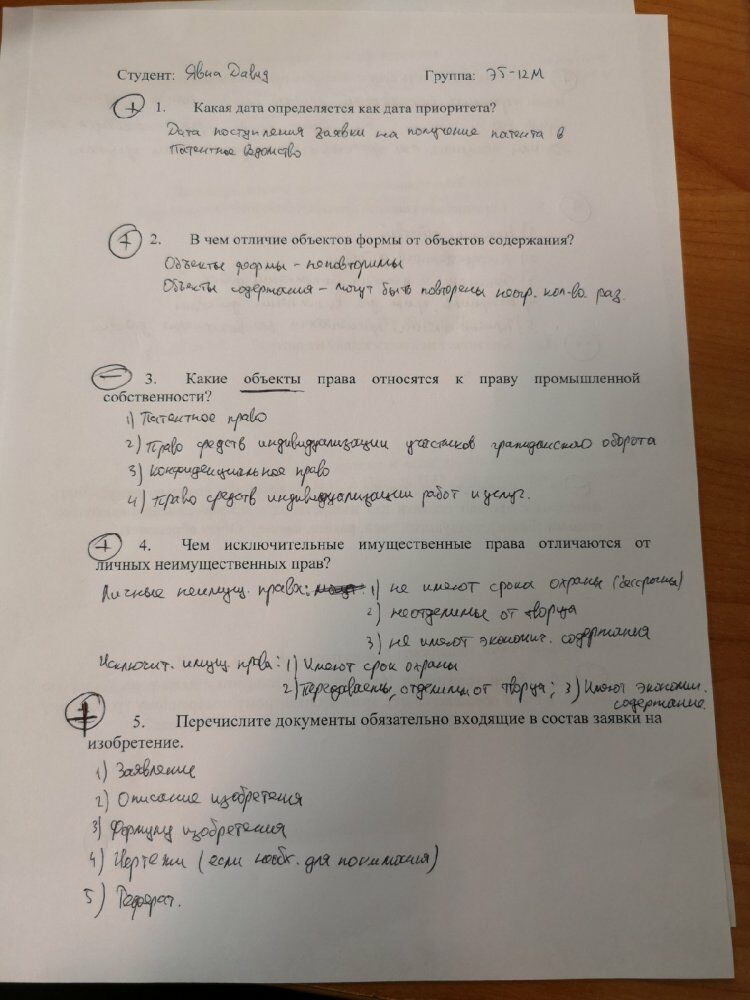 Студент: Явиа Давид Группа: ЭТ-12М
+ 1. Какая дата определяется как дата приоритета?
Дата поступления заявки на получение патента в
Патентное ведомство
+ 2. В чем отличие объектов формы от объектов содержания?
Объекты формы - неповторимы
Объекты содержания - могут быть повторены неогр. кол-во. раз.
- 3. Какие объекты права относятся к праву промышленной
собственности?
1) Патентное право
2) Право средств индивидуализации участников гражданского оборота
3) Конфиденциальное право
4) Право средств индивидуализации работ и услуг.
+ 4. Чем исключительные имущественные права отличаются от
личных неимущественных прав?
Личные неимущ. права: 1) не имеют срока охраны (бессрочны)
2) неотделимые от творца
3) не имеют экономич. содержания
Исключит. имущ. права: 1) Имеют срок охраны
2) Передаваемы, отделимы от творца; 3) Имеют экономич.
содержание.
+ 5. Перечислите документы обязательно входящие в состав заявки на
изобретение.
1) Заявление
2) Описание изобретения
3) Формулу изобретения
4) Чертежи (если необх. для понимания)
5) Реферат.